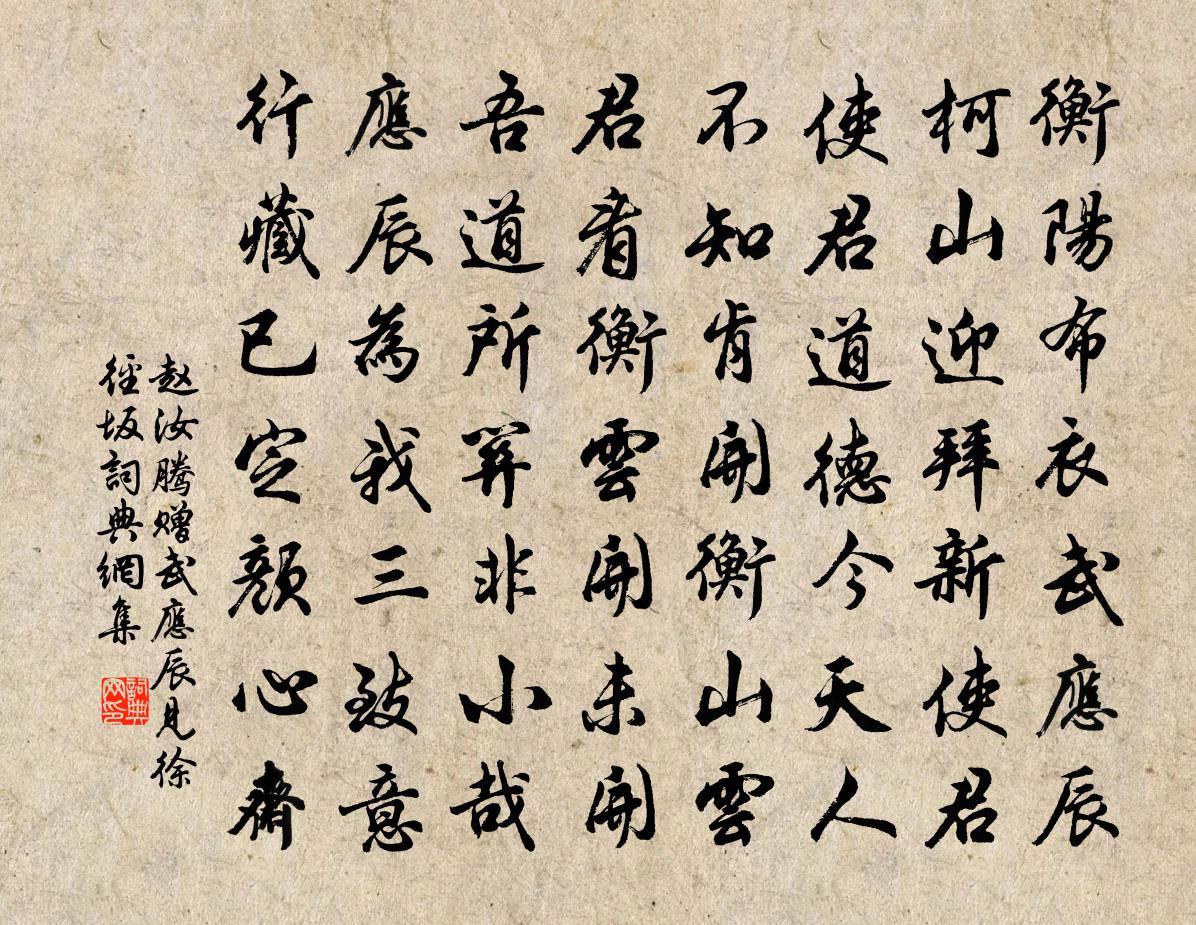 衡陽布衣武應辰
柯山迎拜新使君
使君道德今天人
不知肯開衡山雲
君看衡雲開未開
吾道所關非小哉
應辰為我三致意
行藏已定顏心齋
赵汝腾赠武應辰見徐
徑坂詞典網集
詞典網印